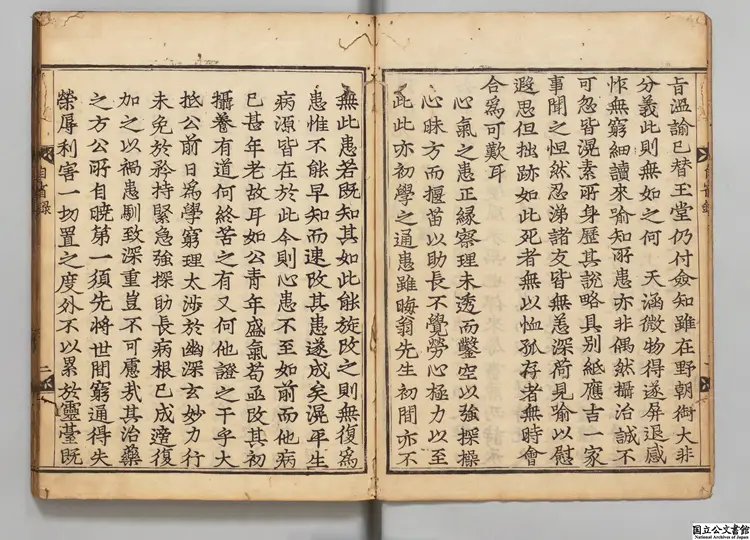 旨溫諭已替玉堂仍付僉知雖在野朝銜大非
分義此則無如之何 天涵微物得遂屏退感
怍無窮細讀來喻知所患亦非偶然攝治誠不
可忽皆滉素所身歷其說略具別紙應吉一家
事聞之怛然忍涕諸友皆無恙深荷見喻以慰
遐思但拙跡如此死者無以恤孤存者無時會
合爲可歎耳
心氣之患正緣察理未透而鑿空以強探操
心昧方而揠苗以助長不覺勞心極力以至
此此亦初學之通患雖晦翁先生初間亦不
無此患若旣知其如此能旋改之則無復爲
患惟不能早知而速改其患遂成矣滉平生
病源皆在於此今則心患不至如前而他病
已甚年老故耳如公靑年盛氣苟亟改其初
攝養有道何終苦之有又何他證之干乎大
抵公前日爲學窮理太涉於幽深玄妙力行
未免於矜持緊急強探助長病根已成適復
加之以禍患馴致深重豈不可慮哉其治藥
之方公所自曉第一須先將世間窮通得失
榮辱利害一切置之度外不以累於靈臺旣
自省錄
二
国立公文書館
National Archives of Japan